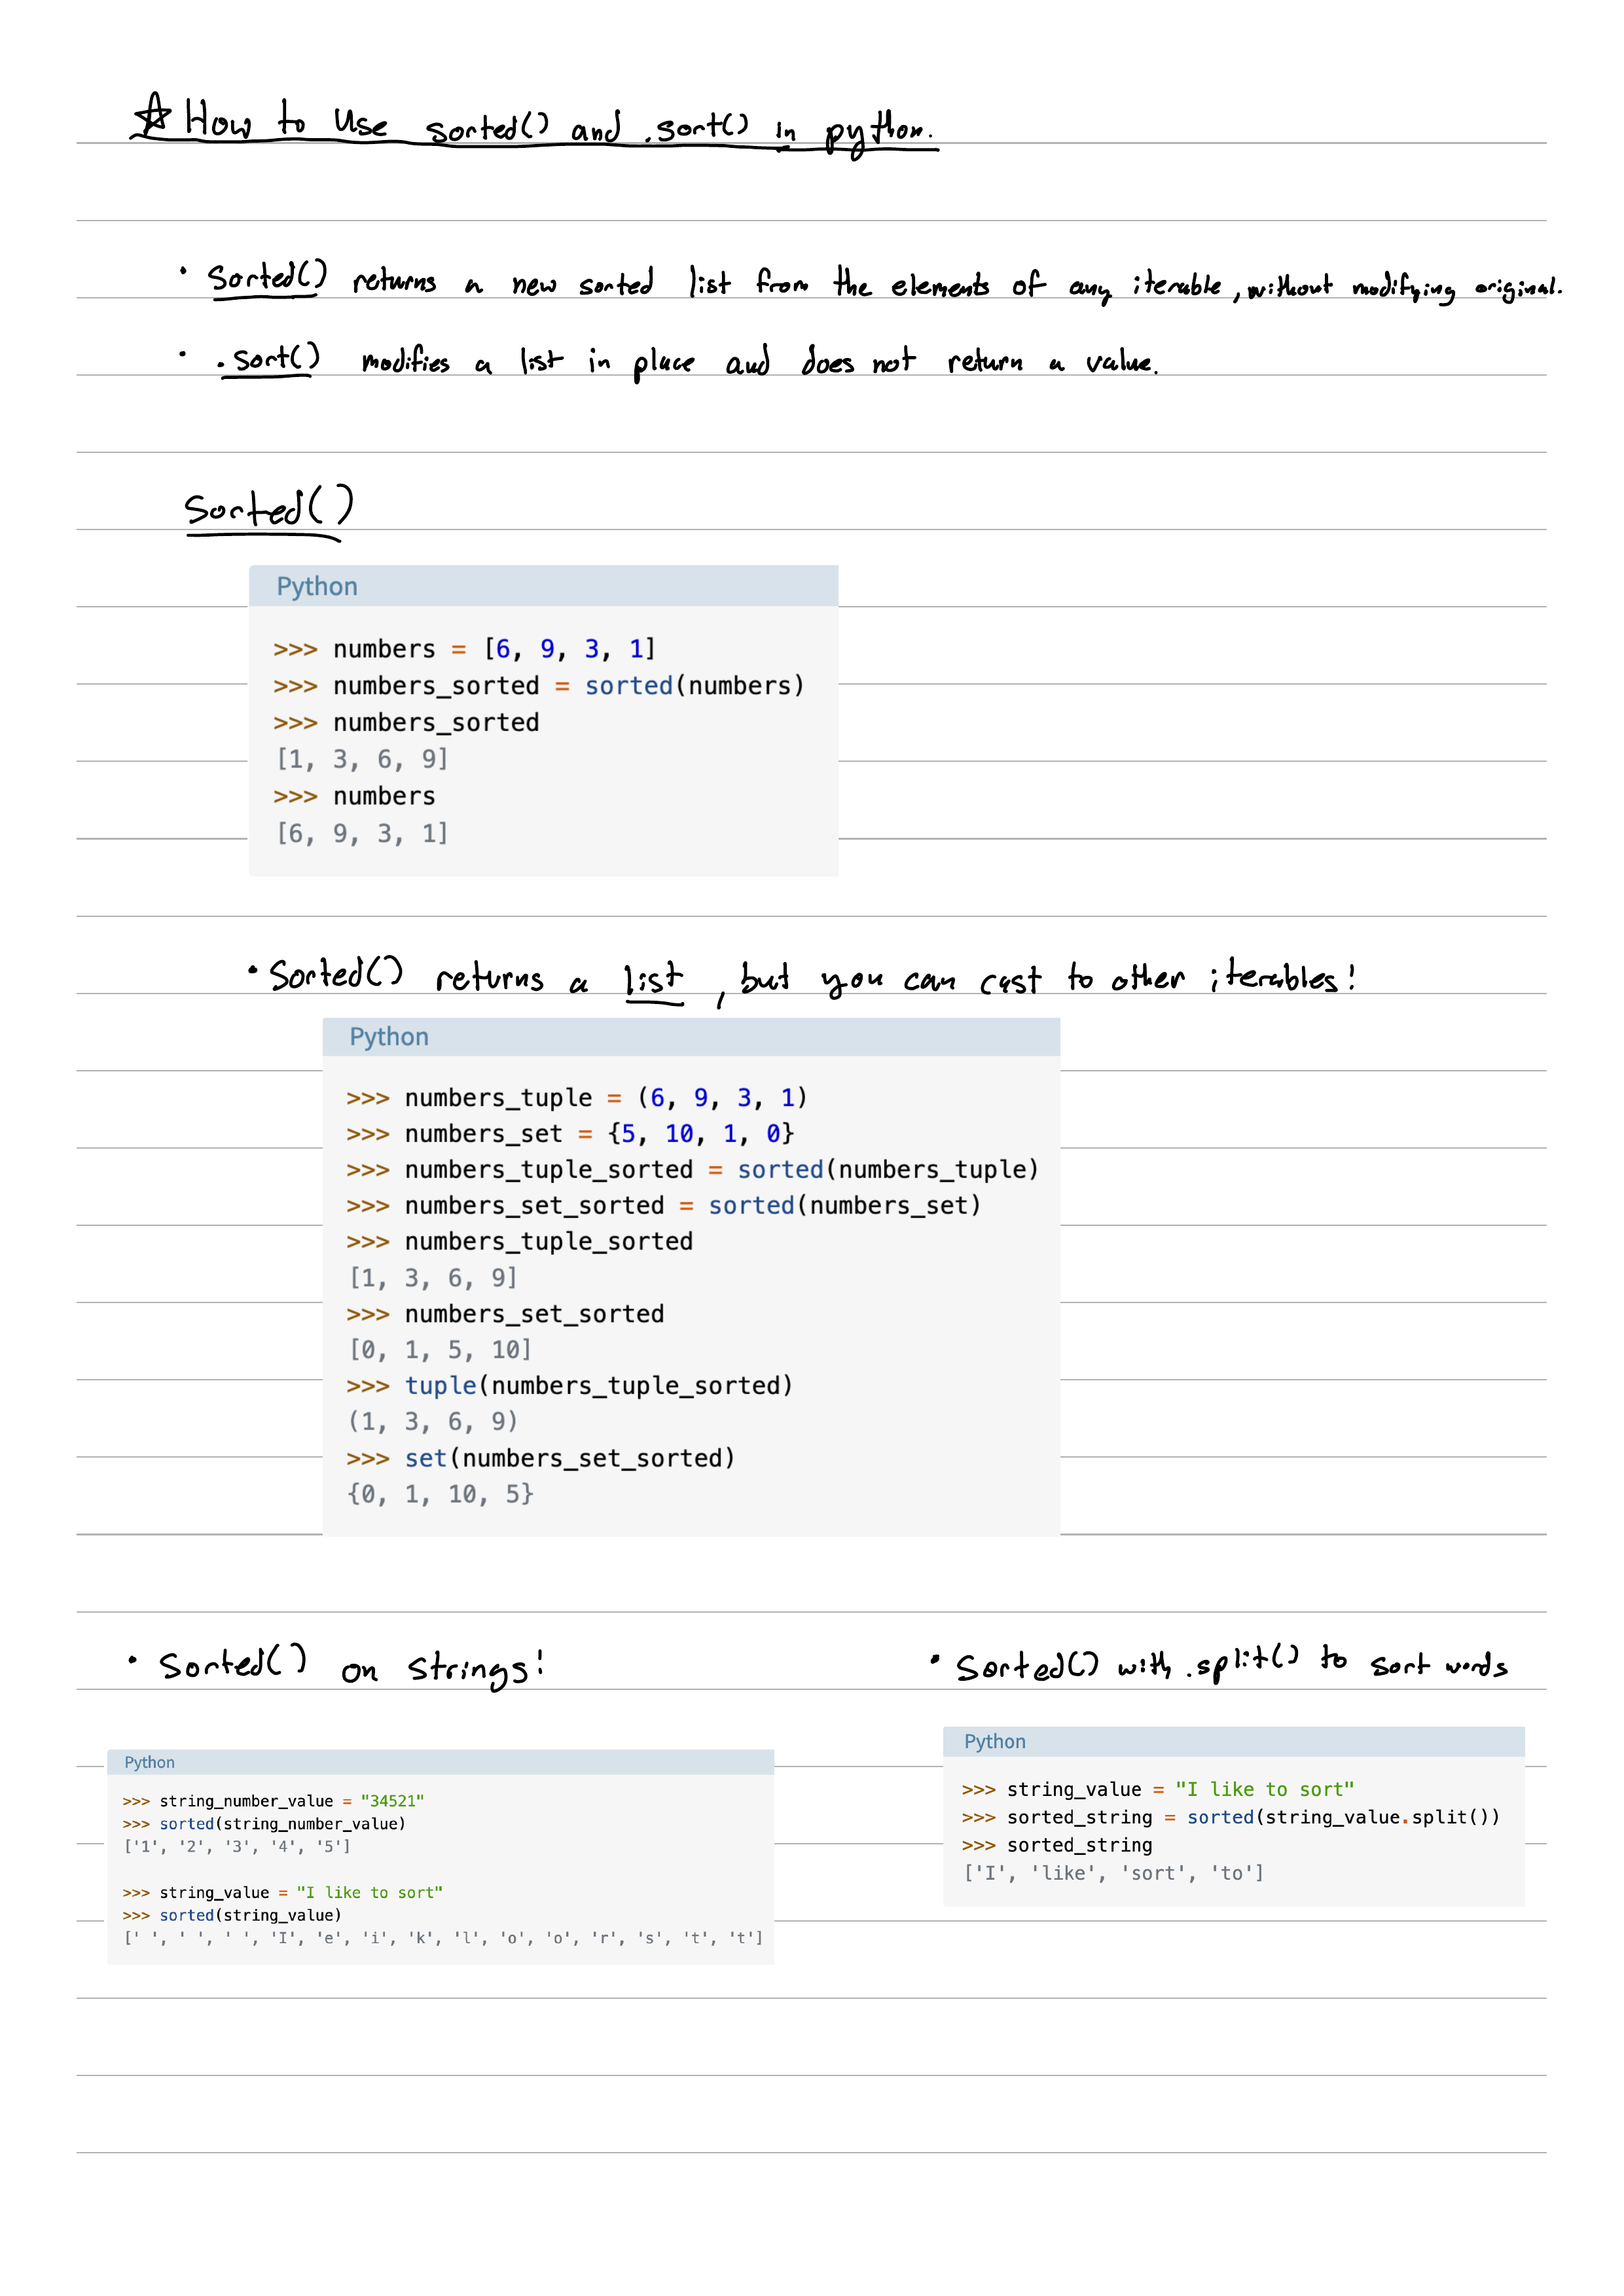 ☆ How to use sorted() and .sort() in python.
• Sorted() returns a new sorted list from the elements of any iterable, without modifying original.
• .sort() modifies a list in place and does not return a value.
Sorted()
Python
>>> numbers = [6, 9, 3, 1]
>>> numbers_sorted = sorted(numbers)
>>> numbers_sorted
[1, 3, 6, 9]
>>> numbers
[6, 9, 3, 1]
• Sorted() returns a list, but you can cast to other iterables!
Python
>>> numbers_tuple = (6, 9, 3, 1)
>>> numbers_set = {5, 10, 1, 0}
>>> numbers_tuple_sorted = sorted(numbers_tuple)
>>> numbers_set_sorted = sorted(numbers_set)
>>> numbers_tuple_sorted
[1, 3, 6, 9]
>>> numbers_set_sorted
[0, 1, 5, 10]
>>> tuple(numbers_tuple_sorted)
(1, 3, 6, 9)
>>> set(numbers_set_sorted)
{0, 1, 10, 5}
• Sorted() on strings!
Python
>>> string_number_value = "34521"
>>> sorted(string_number_value)
['1', '2', '3', '4', '5']
>>> string_value = "I like to sort"
>>> sorted(string_value)
[' ', ' ', ' ', 'I', 'e', 'i', 'k', 'l', 'o', 'o', 'r', 's', 't', 't']
• Sorted() with .split() to sort words
Python
>>> string_value = "I like to sort"
>>> sorted_string = sorted(string_value.split())
>>> sorted_string
['I', 'like', 'sort', 'to']